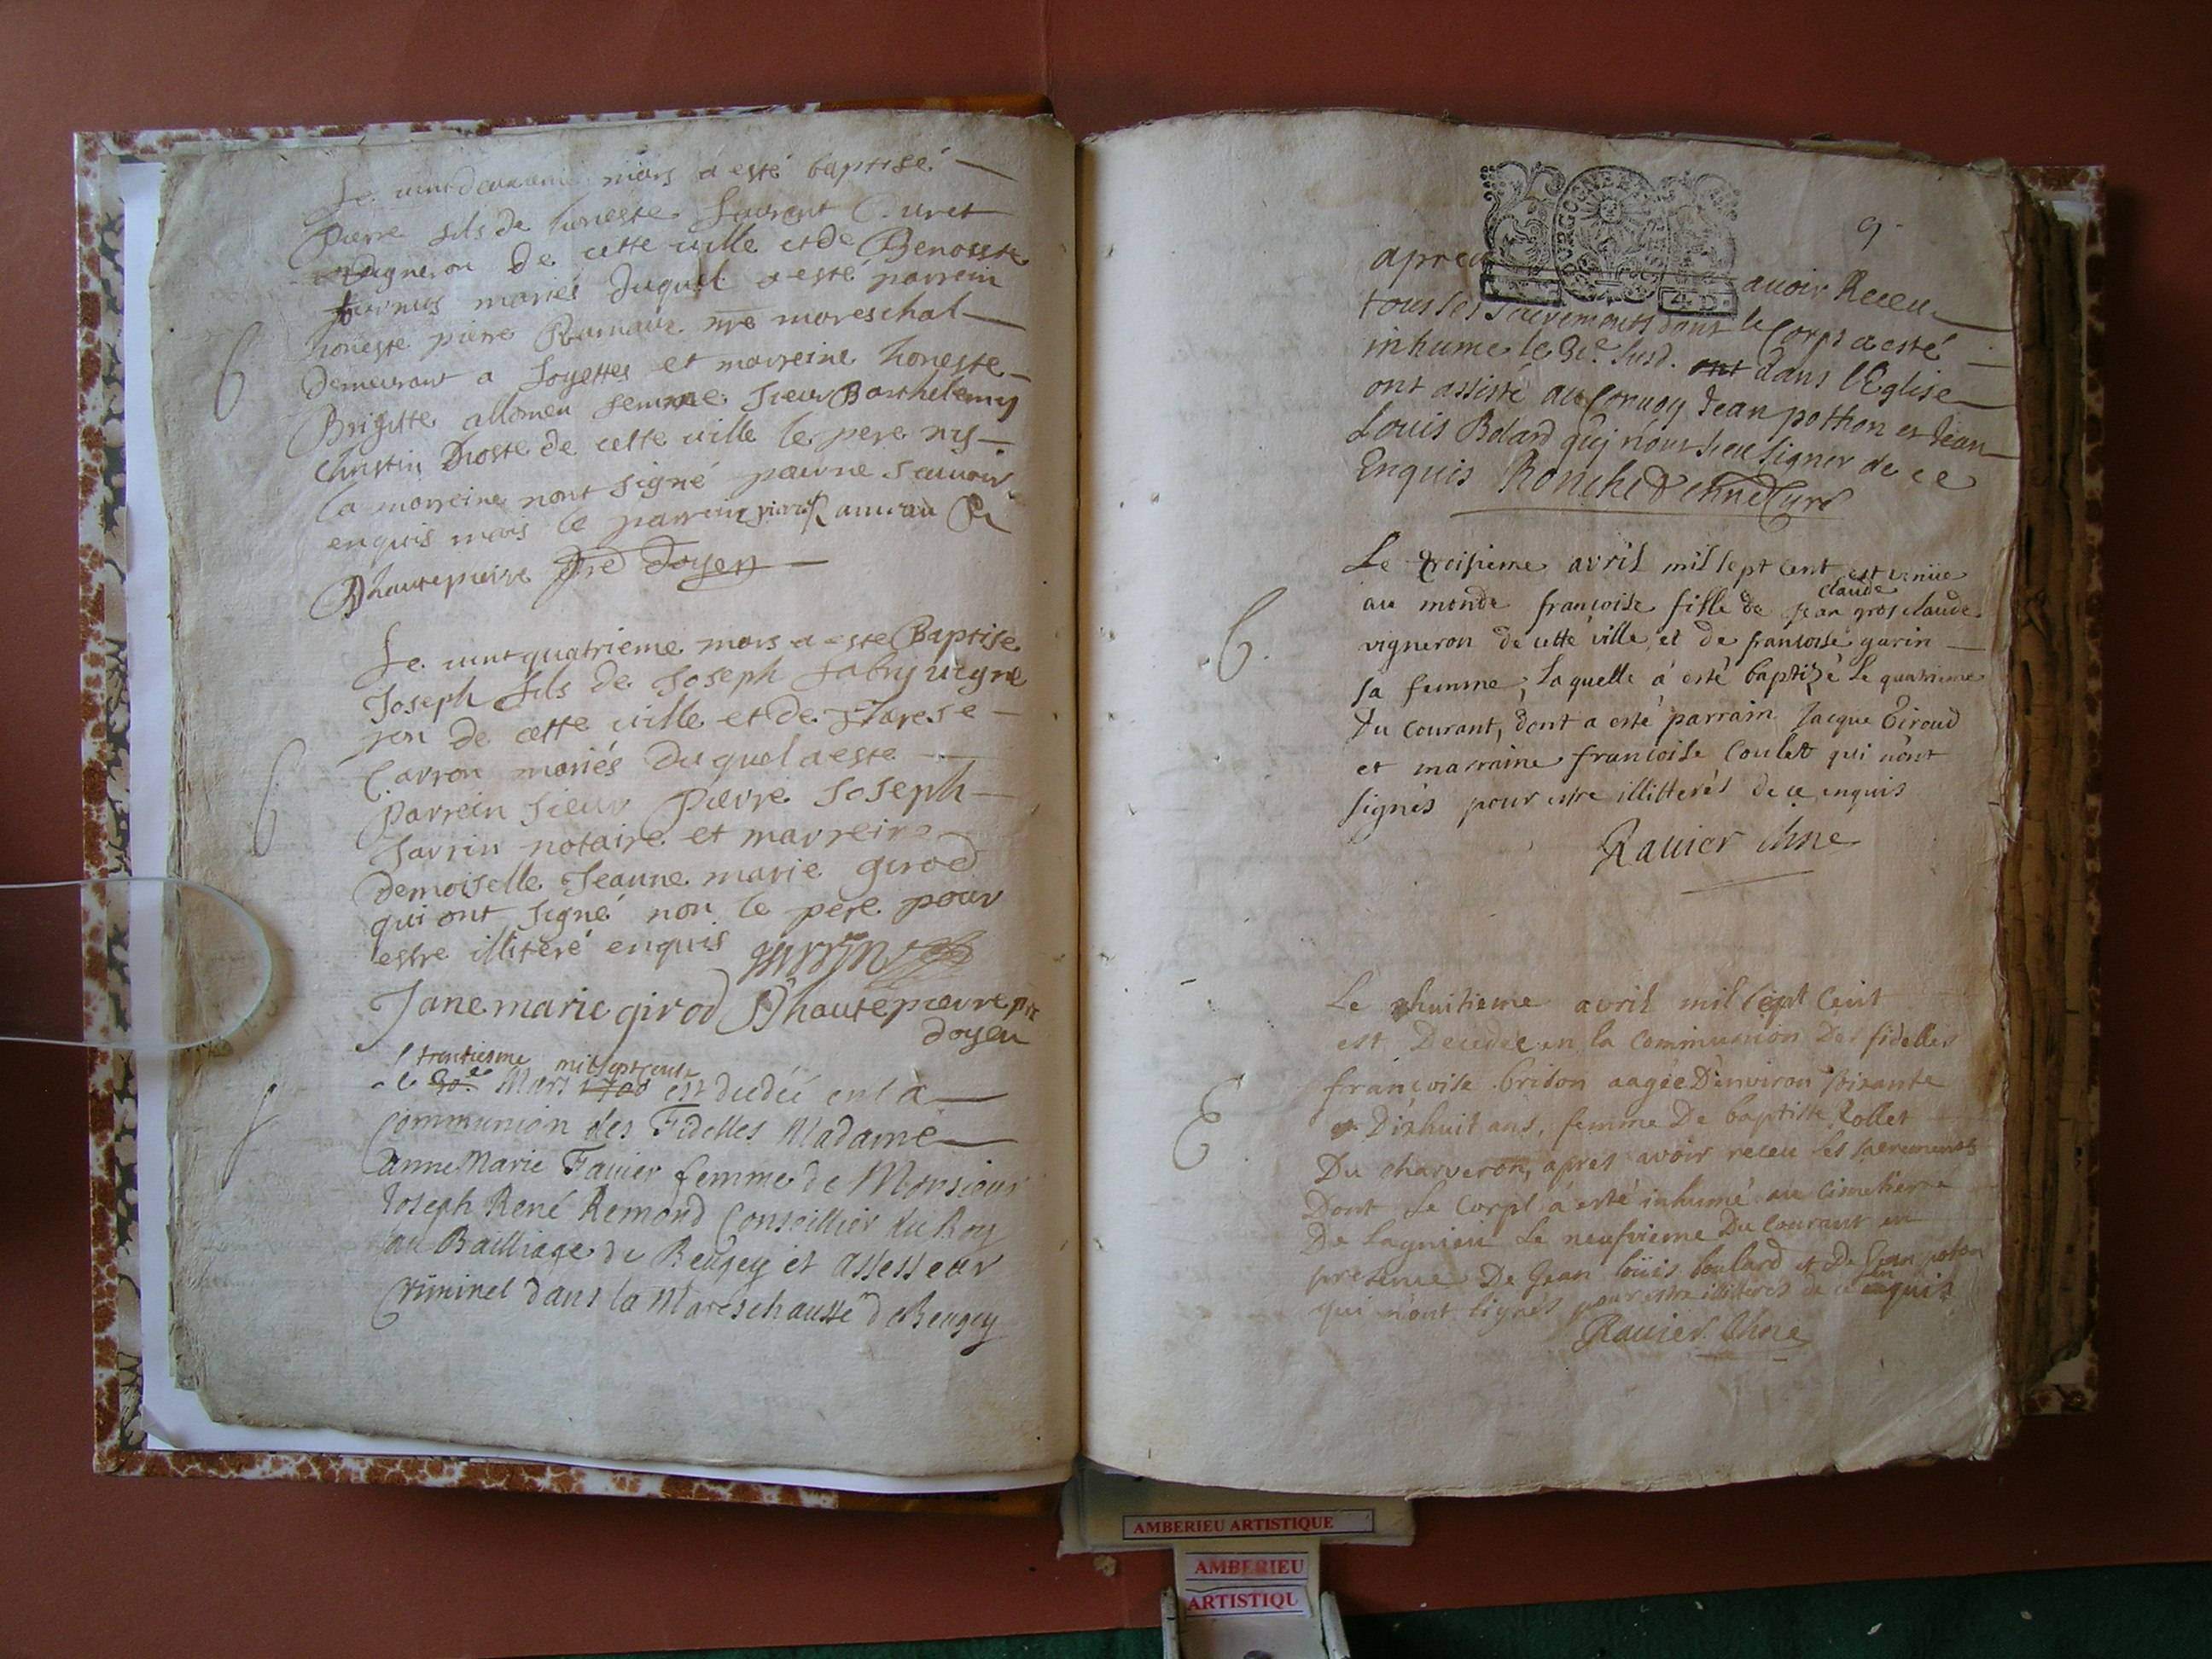 Le vint deuxieme mars a esté baptisé
Pierre fils de honeste Laurent Curet
vigneron de cette ville et de Benoiste
mariés duquel a esté parrein
honeste pierre Rameau mre mareschal
demeurant a Loyettes et marreine honeste
Brigitte allomen femme sieur Barthelemy
Christin hoste de cette ville le pere ny
la marreine nont signé pour ne scavoir
enquis mais le parrein pierre Rameau
Dhautepierre pre doyen
Le vint quatrieme mars a este Baptise
Joseph fils de Joseph fabry vigne
ron de cette ville et de Therese
Carron mariés duquel a este
parrein sieur Pierre Joseph
Jarrin notaire et marreine
demoiselle Jeanne marie girod
qui ont signé non le pere pour
estre illiteré enquis Jarrin
Jane marie girod Dhautepierre pre
doyen
trentiesme mil sept cent
le 30e Mars 1700 est decedée en la
Communion des Fidelles Madame
anne Marie Favier femme de Monsieur
Joseph René Remond Conseillier du Roy
au Bailliage de Beugey et assesseur
Criminel dans la Mareschaussée de Beugey
9.
BURGOGNE
4 D.
apres avoir Receu
tous les sacrements dont le Corps a esté
inhume le 31e. susd. ont dans l'Eglise
ont assisté au Convoy Jean pothon et Jean
Louis Bolard qui n'ont sceu signer de ce
Enquis
Le troisieme avril mil sept cent est venüe
claude
au monde francoise fille de jean gros claude
vigneron de cette ville, et de francoise garin
sa femme, laquelle a esté baptizé le quatrieme
du courant, dont a esté parrain Jacque Giroud
et marraine francoise Coulet qui n'ont
signés pour estre illitterés de ce enquis
Ravier chne
Le huitieme avril mil sept cent
est Decedée en la Communion Des fidelles
françoise brison aagée D'environ soixante
et Dixhuit ans, femme De baptiste Collet
Du charveron, apres avoir receu les sacrements
Dont Le Corps a esté inhumé au Cimetierre
De Lagnieu Le neufvieme Du Courant en
presence De Jean loüis boulard et De Jean poton
qui n'ont signés pour estre illitterés de ce enquis
Ravier Chne
AMBERIEU ARTISTIQUE
AMBERIEU
ARTISTIQU